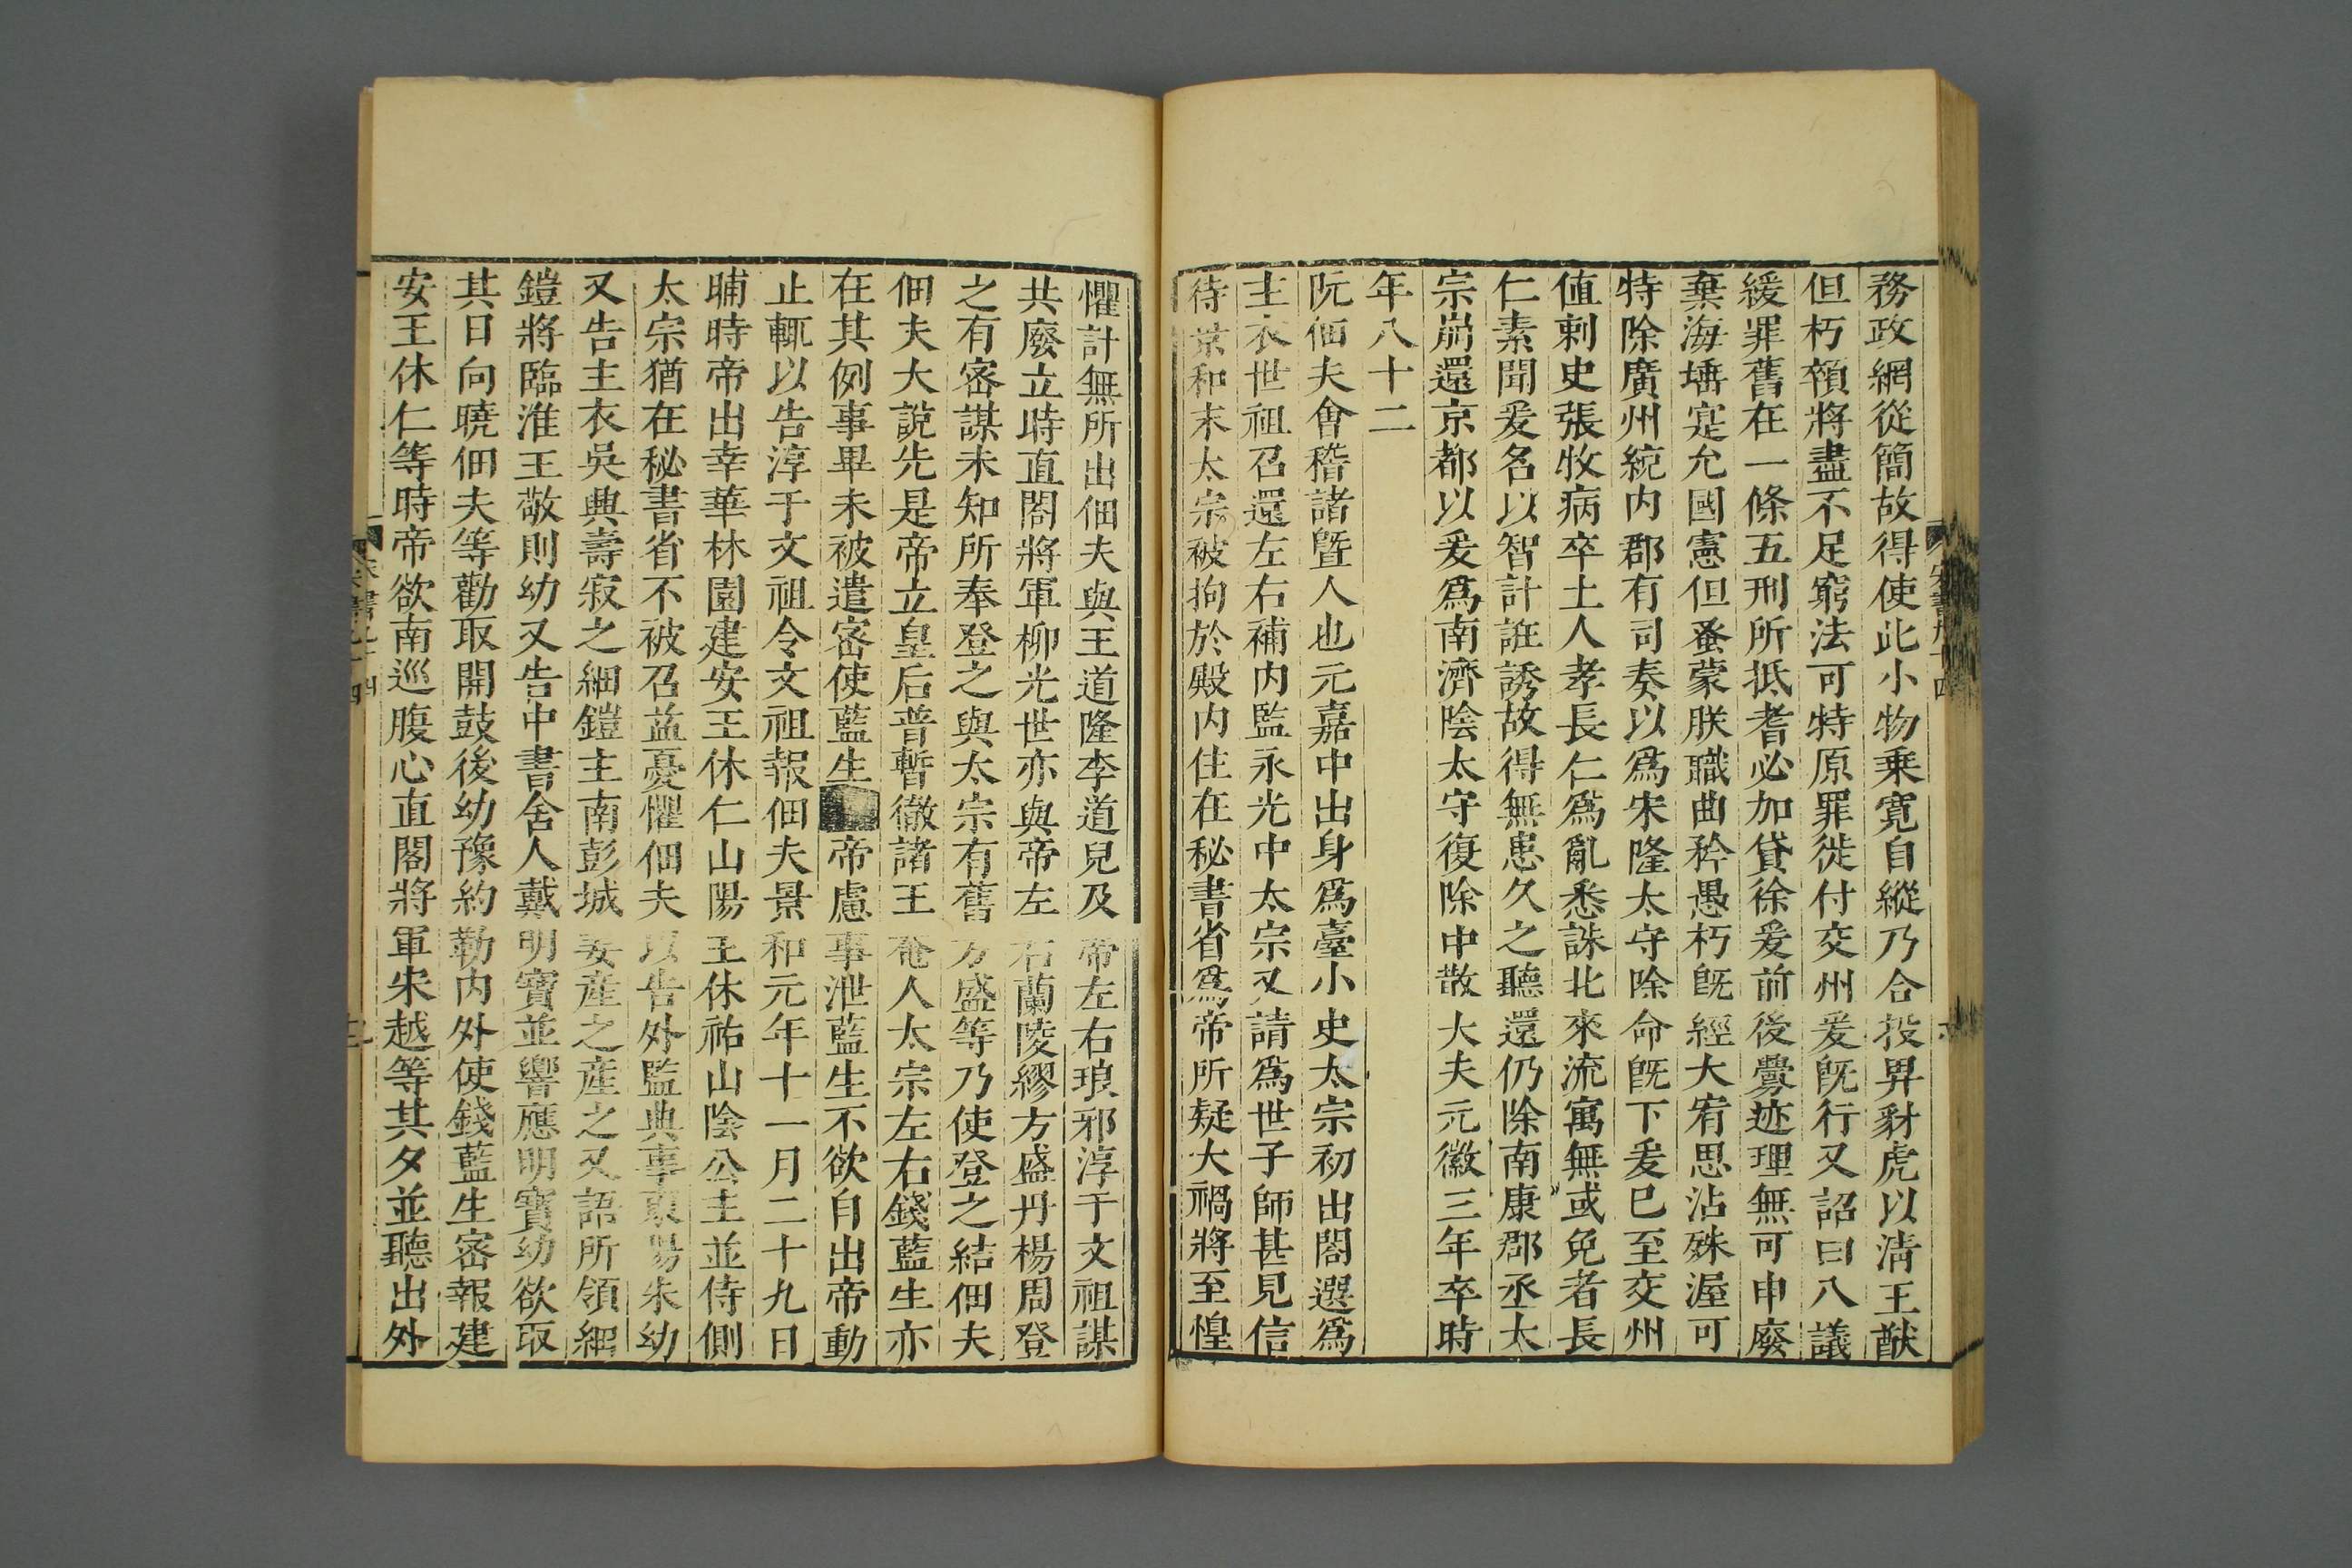 務政網從簡故得使此小物乗寛自縱乃合投畀豺虎以清王猷
但朽領將盡不足窮法可特原罪徙付交州爰旣行又詔曰八議
緩罪舊在一條五刑所抵耆必加貸徐爰前後釁迹理無可申廢
棄海埵寔允國憲但蚤蒙朕職曲矜愚朽旣經大宥思沾殊渥可
特除廣州統内郡有司奏以爲宋隆太守除命旣下爰巳至交州
值剌史張牧病卒土人李長仁爲亂悉誅北來流寓無或免者長
仁素聞爰名以智計誑誘故得無患久之聽還仍除南康郡丞太
宗崩還京都以爰爲南濟隂太守復除中散大夫元徽三年卒時
年八十二
阮佃夫會稽諸暨人也元嘉中出身爲臺小史太宗初出閤選爲
主衣世祖召還左右補内監永光中太宗又請爲世子師甚見信
待景和末太宗被拘於殿内住在秘書省爲帝所疑大禍將至惶
懼計無所出佃夫與王道隆李道兒及帝左右琅邪淳于文祖謀
共廢立時直閤將軍柳光世亦與帝左右蘭陵繆方盛丹楊周登
之有密謀未知所奉登之與太宗有舊方盛等乃使登之結佃夫
佃夫大說先是帝立皇后普暫徹諸王奄人太宗左右錢藍生亦
在其例事畢未被遣密使藍生帝慮事泄藍生不欲自出帝動
止輒以告淳于文祖令文祖報佃夫景和元年十一月二十九日
晡時帝出幸華林園建安王休仁山陽王休祐山陰公主並侍側
太宗猶在秘書省不被召益憂懼佃夫以告外監典事東陽朱幼
又告主衣吳興壽寂之細鎧主南彭城姜産之産之又語所領細
鎧將臨淮王敬則幼又告中書舍人戴明寶並響應明寶幼欲取
其日向曉佃夫等勸取開鼓後幼豫約勒内外使錢藍生密報建
安王休仁等時帝欲南巡腹心直閤將軍宋越等其夕並聽出外